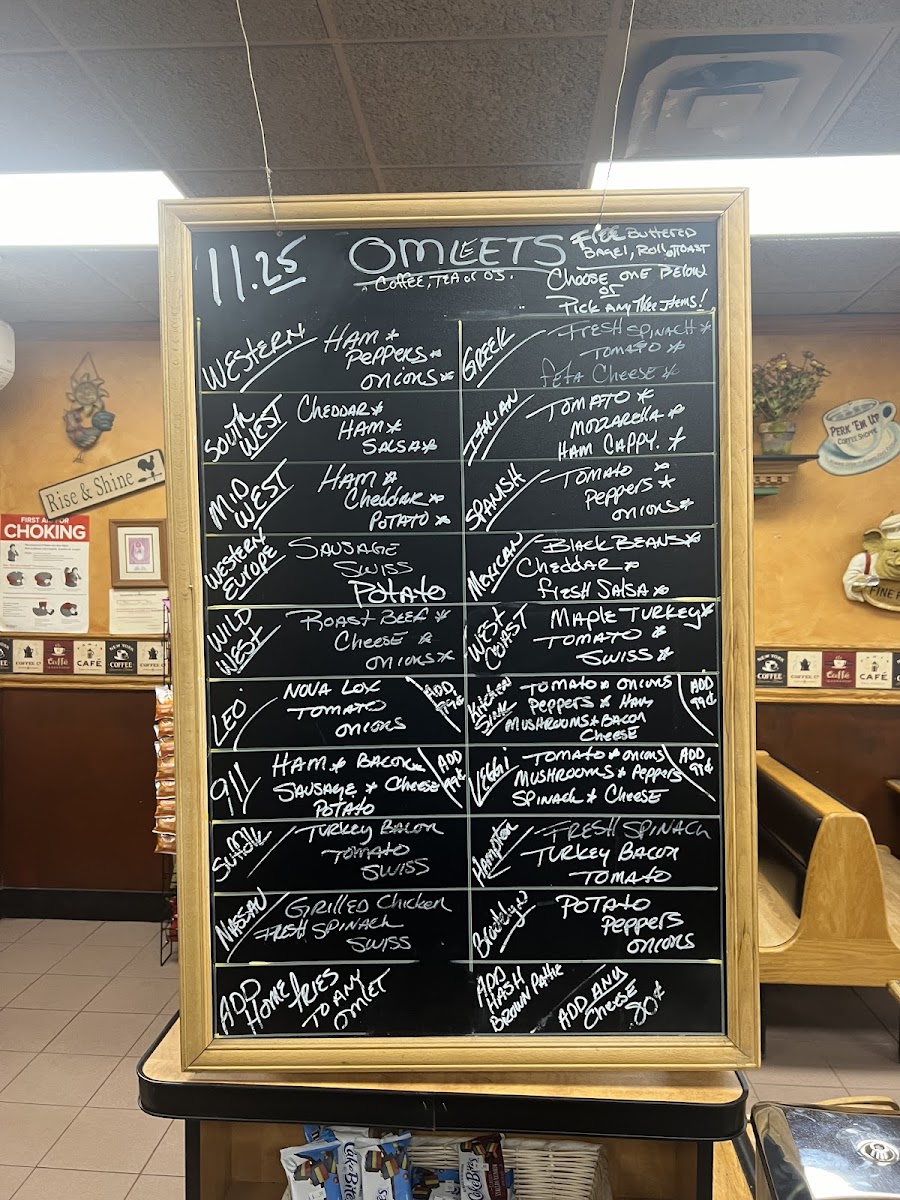 11.25
OMLEETS
Coffee, TEA or OJ.
FREE BUTTERED
BAGEL, ROLL, TOAST
CHOOSE ONE BELOW
OR
PICK ANY THEE ITEMS!
WESTERN
HAM *
PEPPERS *
ONIONS *
SOUTH
WEST
CHEDDAR *
HAM *
SALSA *
MID
WEST
HAM *
CHEDDAR *
POTATO *
WESTERN
EUROPE
SAUSAGE
SWISS
POTATO
WILD
WEST
ROAST BEEF *
CHEESE *
ONIONS *
LEO
NOVA LOX
TOMATO
ONIONS
ADD
99¢
911
HAM * BACON *
SAUSAGE * CHEESE
POTATO
ADD
99¢
SUFFOLK
TURKEY BACON
TOMATO
SWISS
NASSAU
GRILLED CHICKEN
FRESH SPINACH
SWISS
ADD
HOME FRIES
TO ANY
OMLET
GREEK
FRESH SPINACH *
TOMATO *
FETA CHEESE *
ITALIAN
TOMATO *
MOZZARELLA *
HAM CAPPY. *
SPANSH
TOMATO *
PEPPERS *
ONIONS *
MEXICAN
BLACK BEANS *
CHEDDAR *
FRESH SALSA *
WEST
COAST
MAPLE TURKEY *
TOMATO *
SWISS *
KITCHEN
SINK
TOMATO * ONIONS
PEPPERS * HAM
MUSHROOMS * BACON
CHEESE
ADD
99¢
VEGGI
TOMATO * ONIONS
MUSHROOMS * PEPPERS
SPINACH * CHEESE
ADD
99¢
HAMPTON
FRESH SPINACH
TURKEY BACON
TOMATO
Brooklyn
POTATO
PEPPERS
ONIONS
ADD
HASH
BROWN PATTIE
ADD ANY
CHEESE
.80¢
Rise & Shine
FIRST AID FOR
CHOKING
PERK 'EM UP
COFFEE SHOPPE
FINE
COFFEE
Caffé
CAFÉ
NEW YORK
COFFEE
COFFEE
NEW YORK
COFFEE
COFFEE
Caffé
CAFÉ
CakeBites